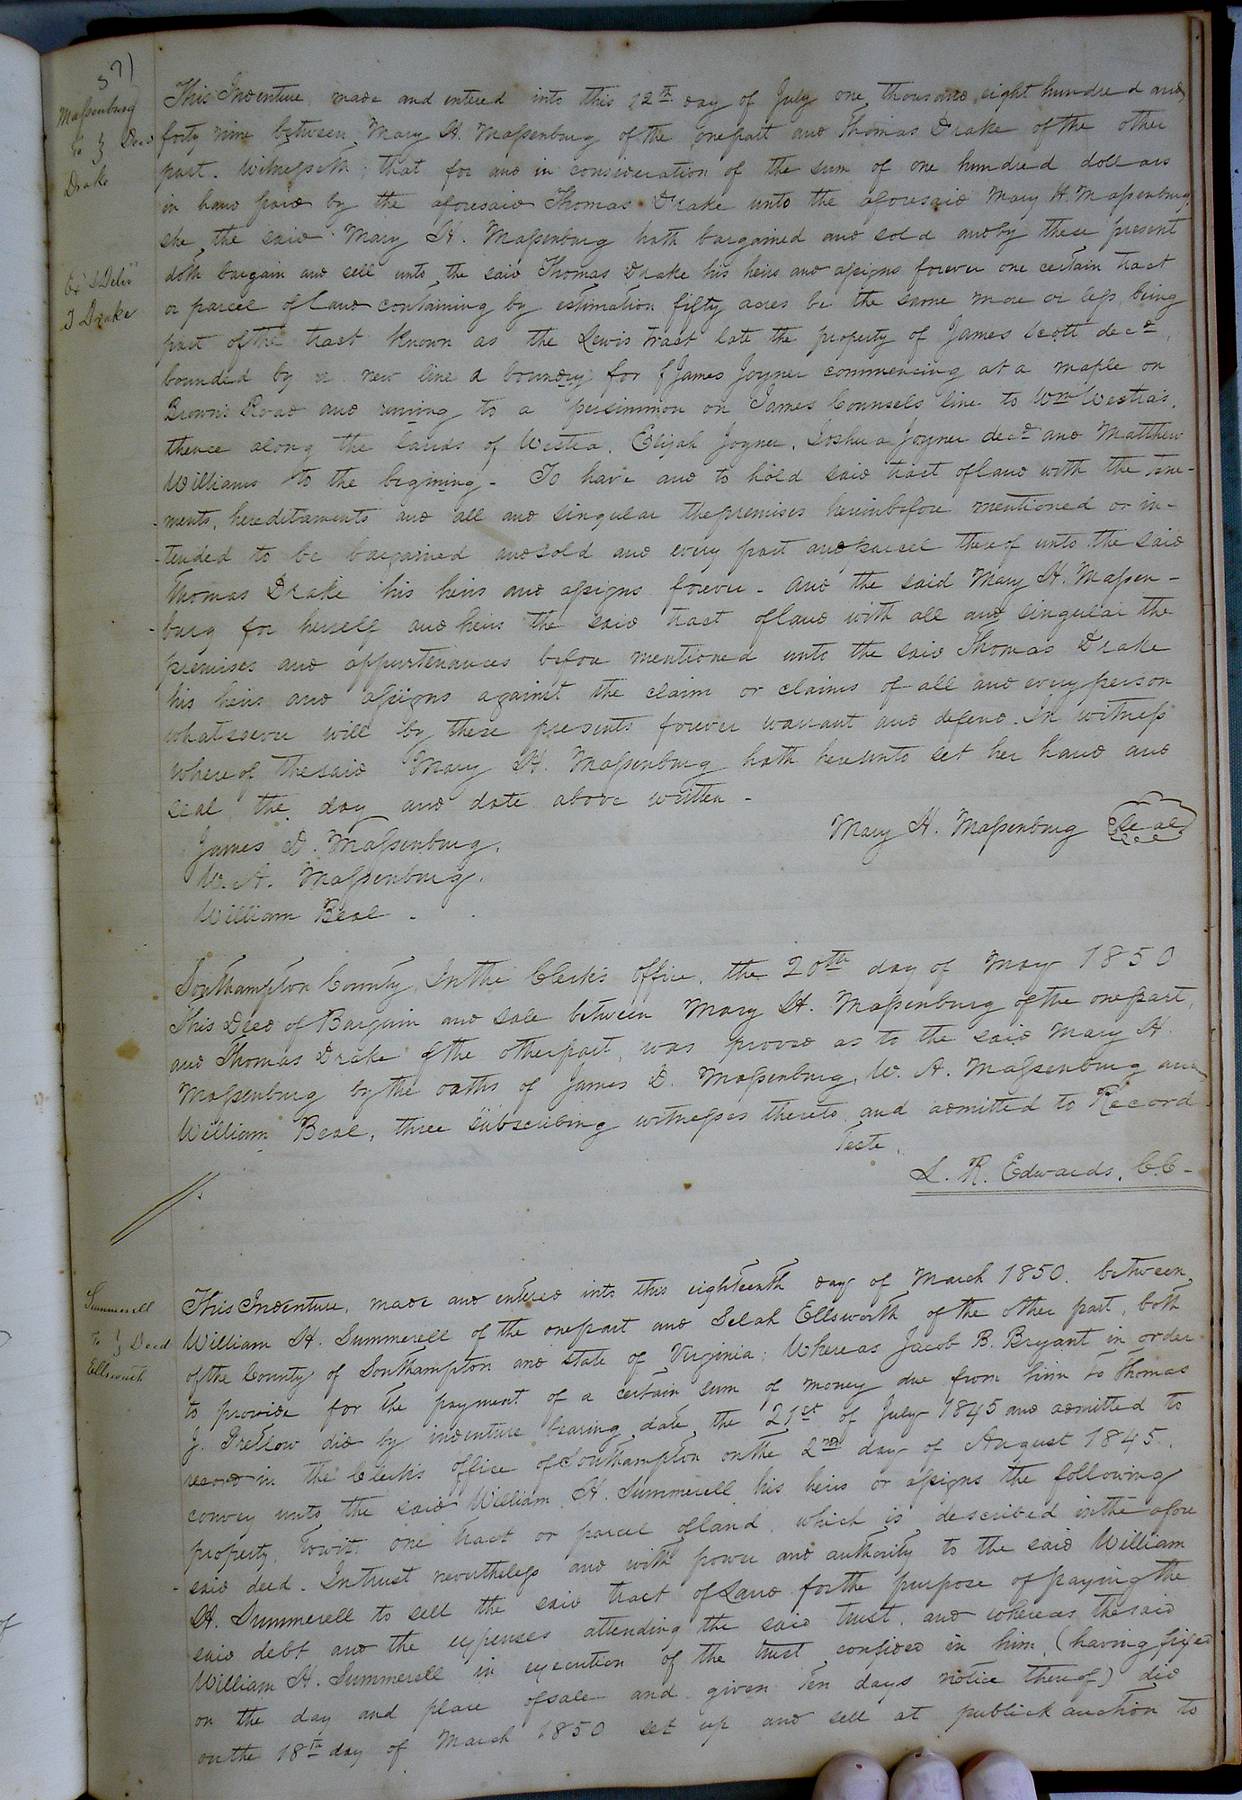 571
Massenburg
to } Deed
Drake
Ex'd & Deliv'd
T Drake
This Indenture, made and entered into this 12th day of July one thousand eight hundred and
forty nine between Mary H. Massenburg of the one part and Thomas Drake of the other
part. Witnesseth; that for and in consideration of the sum of one hundred dollars
in hand paid by the aforesaid Thomas Drake unto the aforesaid Mary H. Massenburg
she the said Mary H. Massenburg hath bargained and sold and by these present
doth bargain and sell unto the said Thomas Drake his heirs and assigns forever one certain tract
or parcel of land containing by estimation fifty acres be the same more or less, being
part of the tract known as the Lewis tract late the property of James Scott decd.
bounded by a new line a boundry for James Joyner commencing at a maple on
Brown's Road and runing to a persimmon on James Counsels line to Wm Westra's,
thence along the lands of Westra, Elijah Joyner, Joshua Joyner decd and Matthew
Williams to the begining - To have and to hold said tract of land with the tene-
ments, hereditaments and all and singular the premises hereinbefore mentioned or in-
-tended to be bargained and sold and every part and parcel thereof unto the said
Thomas Drake his heirs and assigns forever - and the said Mary H. Massen-
-burg for herself and heirs the said tract of land with all and singular the
premises and appurtenances before mentioned unto the said Thomas Drake
his heirs and assigns against the claim or claims of all and every person
whatsoever will by these presents forever warrant and defend. In witness
whereof the said Mary H. Massenburg hath hereunto set her hand and
seal the day and date above written -
Mary H. Massenburg Seal
James D. Massenburg.
W. A. Massenburg.
William Beal -
Southampton County, In the Clerk's office, the 20th day of May 1850
This Deed of Bargain and sale between Mary H. Massenburg of the one part,
and Thomas Drake of the other part, was proved as to the said Mary H.
Massenburg by the oaths of James D. Massenburg, W. A. Massenburg and
William Beal, three subscribing witnesses thereto and admitted to Record
Teste,
L. R. Edwards, C.C -
Summerell
to } Deed
Ellsworth
This Indenture, made and entered into this eighteenth day of March 1850. between
William H. Summerell of the one part and Selah Ellsworth of the other part, both
of the County of Southampton and state of Virginia; Whereas Jacob B. Bryant in order
to provide for the payment of a certain sum of money due from him to Thomas
J. Pretlow did by indenture bearing date the 21st of July 1845 and admitted to
record in the Clerk's office of Southampton on the 2nd day of August 1845.
convey unto the said William H. Summerell his heirs or assigns the following
property, towit: one tract or parcel of land, which is described in the afore
-said deed. In trust nevertheless and with power and authority to the said William
H. Summerell to sell the said tract of Land for the purpose of paying the
said debt and the expenses attending the said trust, and whereas the said
William H. Summerell in execution of the trust confided in him (having fixed
on the day and place of sale and given ten days notice thereof) did
on the 18th day of March 1850 set up and sell at publick auction to